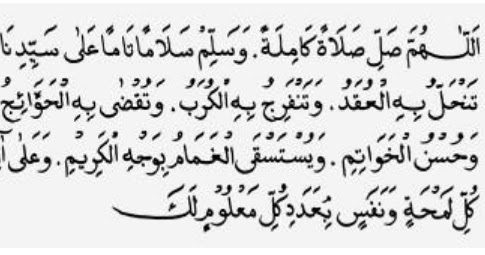 اَللّٰهُمَّ صَلِّ صَلَاةً كَامِلَةً. وَسَلِّمْ سَلَامًا تَامًا عَلٰى سَيِّدِنَا
تَنْحَلُّ بِهِ الْعُقَدُ. وَتَنْفَرِجُ بِهِ الْكُرَبُ. وَتُقْضٰى بِهِ الْحَوَّائِجُ
وَحُسْنُ الْخَوَاتِمِ. وَيُسْتَسْقَى الْغَمَامُ بِوَجْهِهِ الْكَرِيْمِ. وَعَلٰى
كُلِّ لَمْحَةٍ وَنَفَسٍ بِعَدَدِ كُلِّ مَعْلُوْمٍ لَكَ